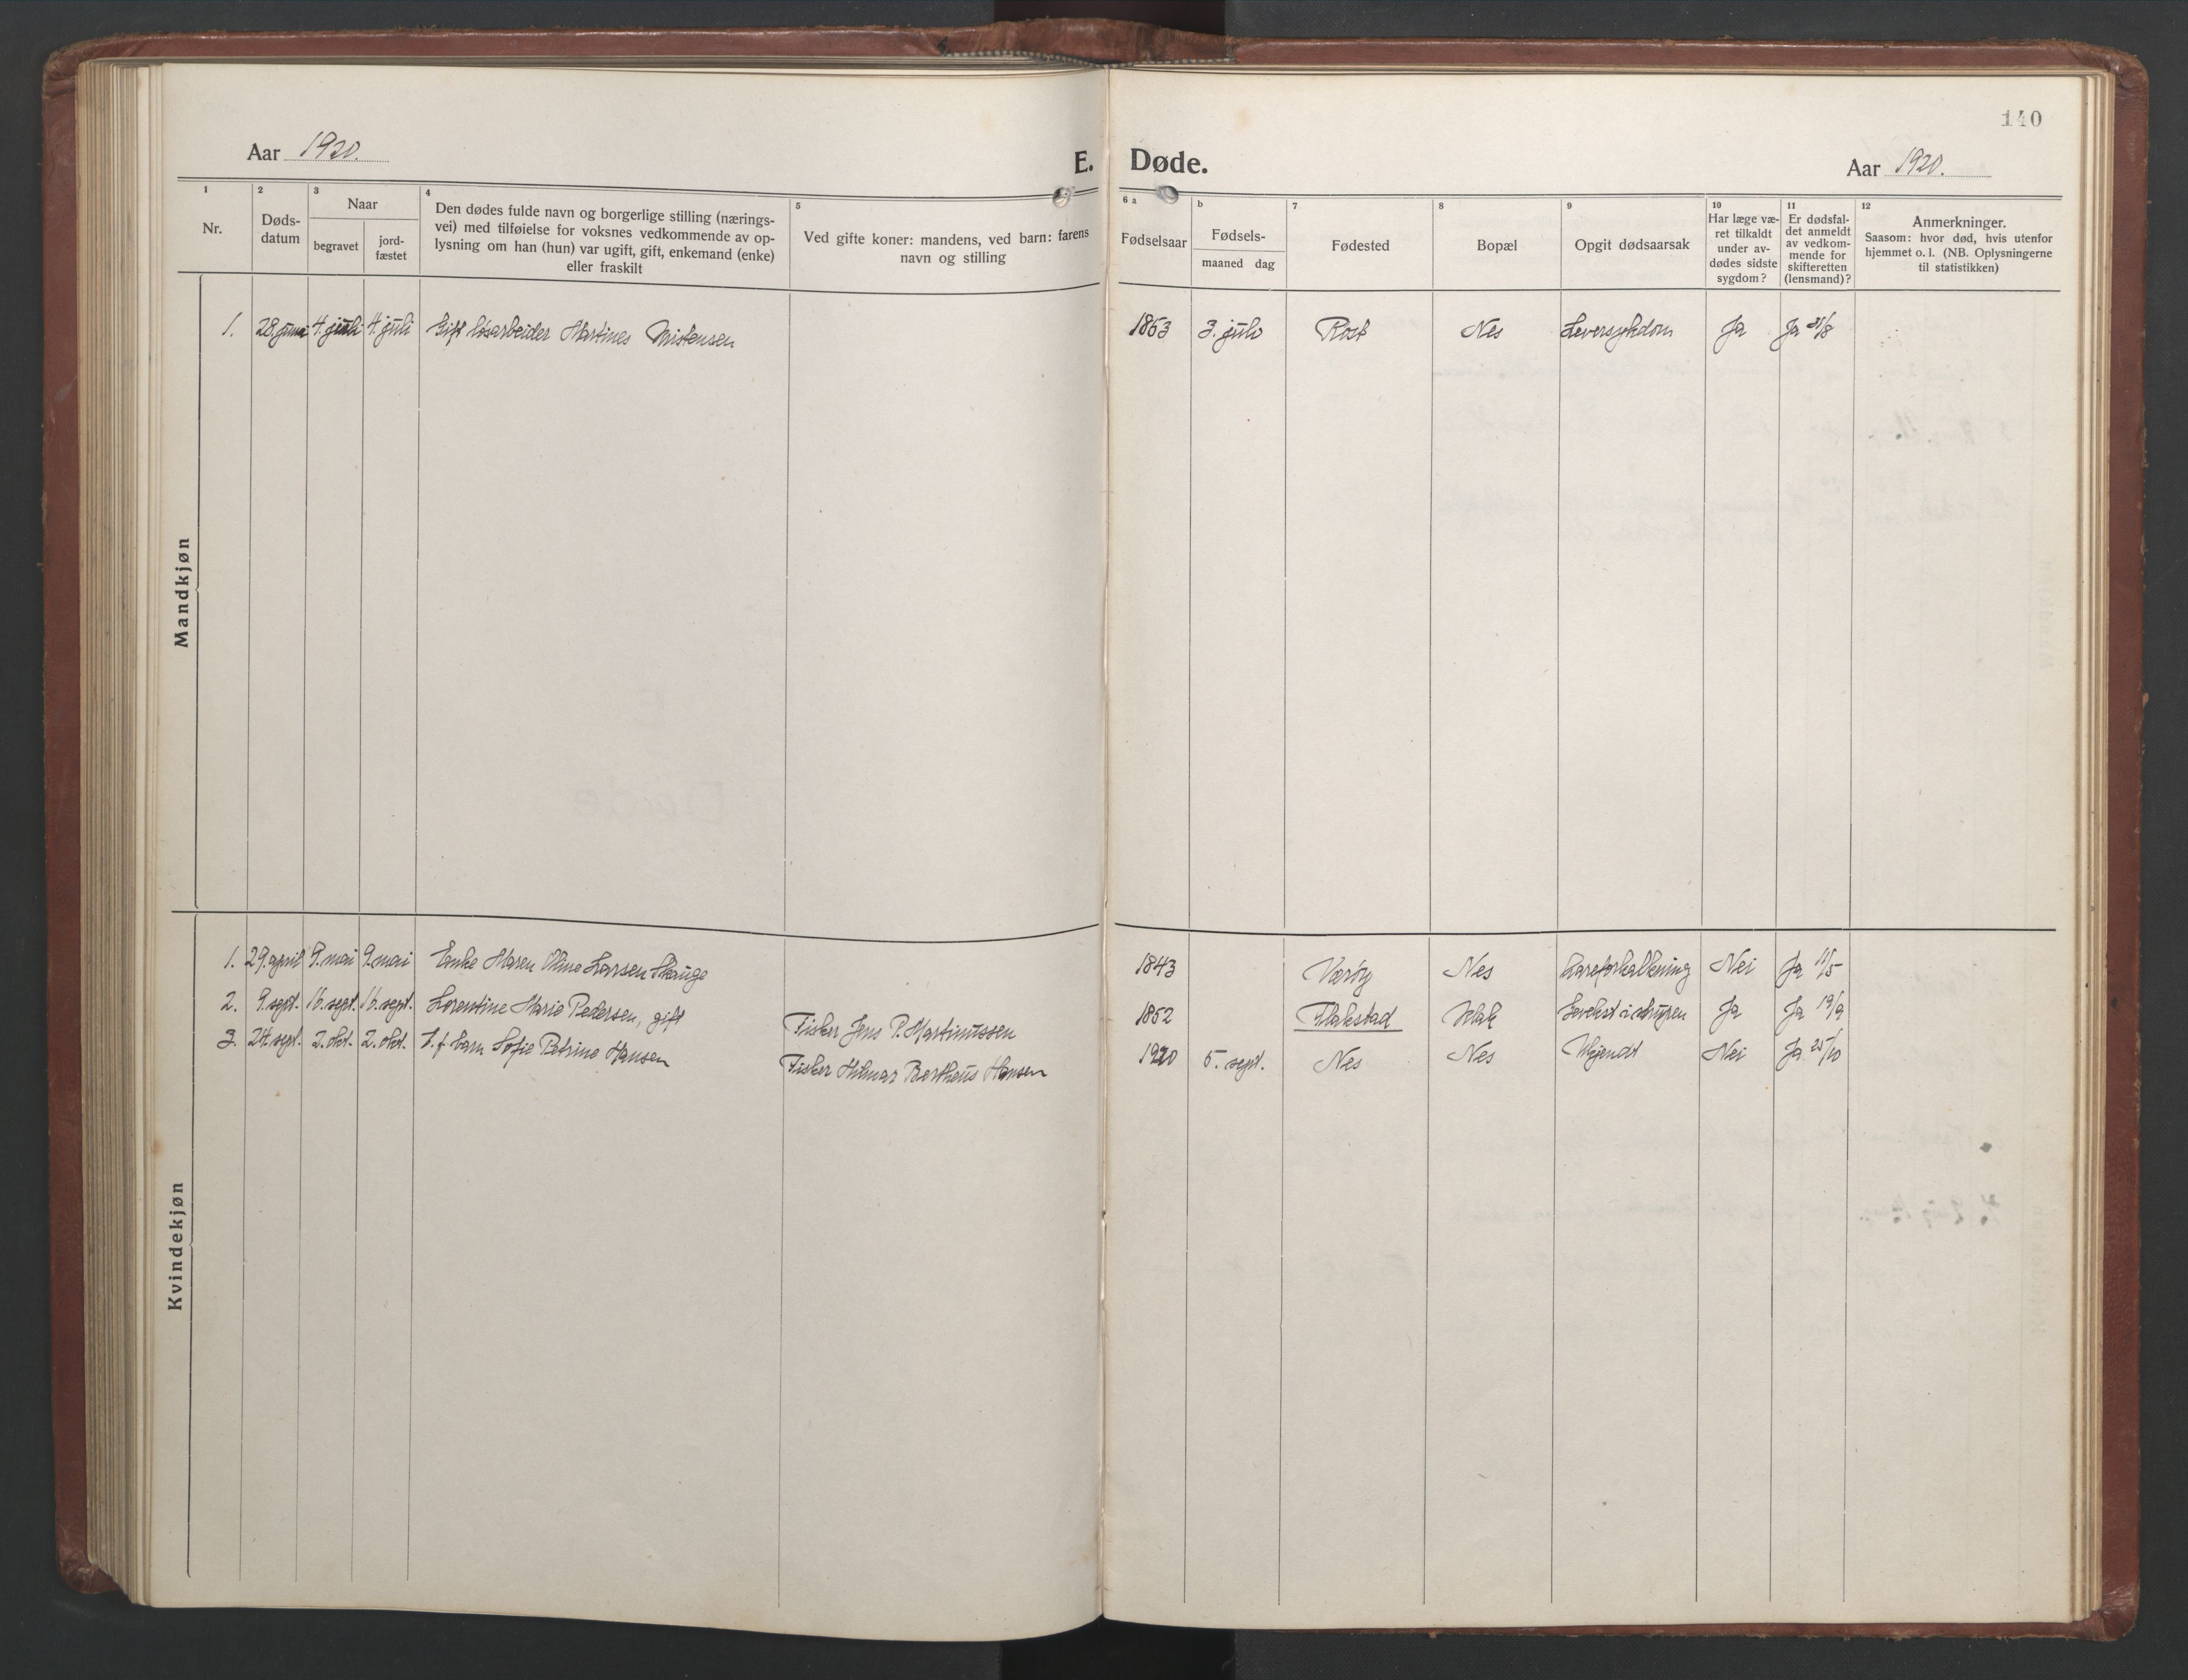 140
Aar 1920.
E. Døde.
Aar 1920.
1 2 3 4 5 6 a b 7 8 9 10 11 12
Nr.
Døds-
datum
Naar
begravet
jord-
fæstet
Den dødes fulde navn og borgerlige stilling (nærings-
vei) med tilføielse for voksnes vedkommende av op-
lysning om han (hun) var ugift, gift, enkemand (enke)
eller fraskilt
Ved gifte koner: mandens, ved barn: farens
navn og stilling
Fødselsaar
Fødsels-
maaned dag
Fødested
Bopæl
Opgit dødsaarsak
Har læge væ-
ret tilkaldt
under av-
dødes sidste
sygdom?
Er dødsfal-
det anmeldt
av vedkom-
mende for
skifteretten
(lensmand)?
Anmerkninger.
Saasom: hvor død, hvis utenfor
hjemmet o. l. (NB. Oplysningerne
til statistikken)
Mandkjøn
1. 28. juni 4. juli 4. juli Gift løsarbeider Martines Mistensen 1853 3. juli Røst Nes Leversykdom Ja Ja 31/8
Kvindekjøn
1. 29. april 9. mai 9. mai Enke Maren Oline Larsen Skauge 1843 Værøy Nes Aareforkalkning Nei Ja 11/5
2. 9. sept. 16. sept. 16. sept. Lorentine Marie Pedersen, gift Fisker Jens P. Martinussen 1852 Flakstad Klak Ja Ja 19/9
3. 24. sept. 2. okt. 2. okt. U. f. barn Sofie Petrine Hansen Fisker Hilmar Bertheus Hansen 1920 5. sept. Nes Nes Ukjendt Nei Ja 25/10